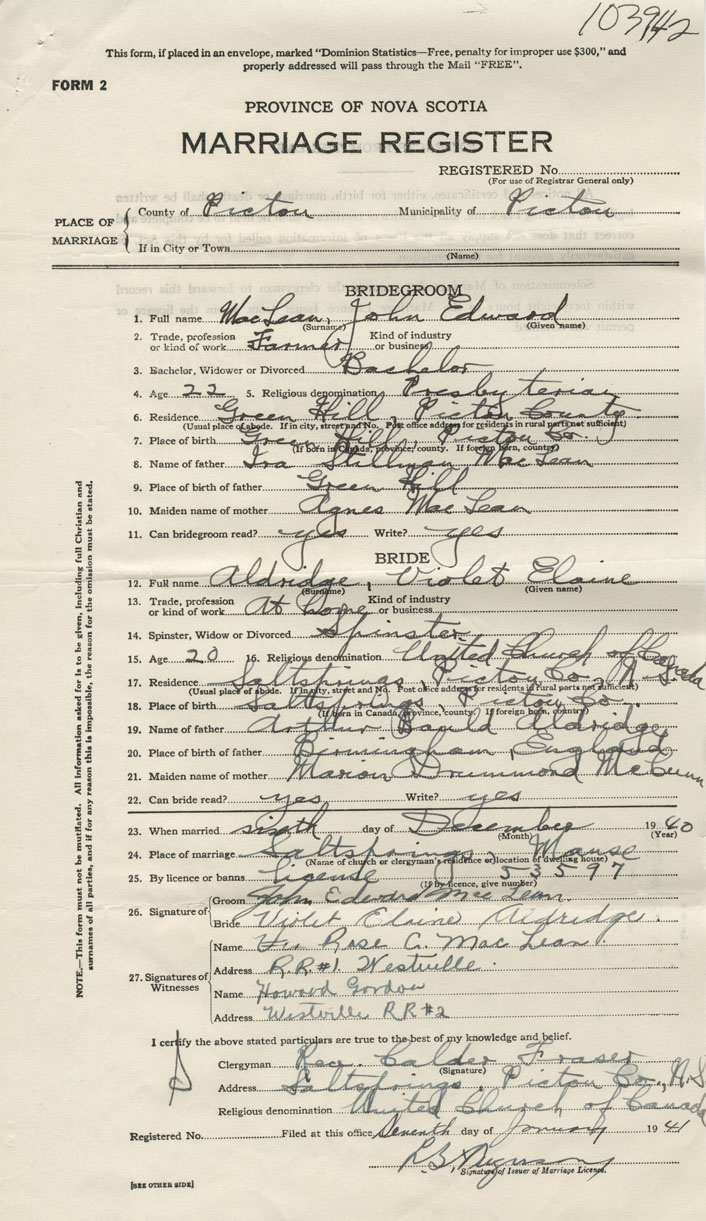 103942
This form, if placed in an envelope, marked "Dominion Statistics—Free, penalty for improper use $300," and
properly addressed will pass through the Mail "FREE".
FORM 2
PROVINCE OF NOVA SCOTIA
MARRIAGE REGISTER
REGISTERED No.
(For use of Registrar General only)
PLACE OF MARRIAGE
County of Pictou Municipality of Pictou
If in City or Town
(Name)
BRIDEGROOM
1. Full name MacLean, John Edward
(Surname) (Given name)
2. Trade, profession or kind of work Farmer Kind of industry or business
3. Bachelor, Widower or Divorced Bachelor
4. Age 22 5. Religious denomination Presbyterian
6. Residence Green Hill, Pictou County
(Usual place of abode. If in city, street and No. Post office address for residents in rural parts not sufficient)
7. Place of birth Green Hill, Pictou Co.
(If born in Canada, province, county. If foreign born, country)
8. Name of father Ira Stillman MacLean
9. Place of birth of father Green Hill
10. Maiden name of mother Agnes MacLean
11. Can bridegroom read? yes Write? yes
BRIDE
12. Full name Aldridge, Violet Elaine
(Surname) (Given name)
13. Trade, profession or kind of work At home Kind of industry or business
14. Spinster, Widow or Divorced Spinster
15. Age 20 16. Religious denomination United Church of Canada
17. Residence Saltsprings, Pictou Co., N.S.
(Usual place of abode. If in city, street and No. Post office address for residents in rural parts not sufficient)
18. Place of birth Saltsprings, Pictou Co.
(If born in Canada, province, county. If foreign born, country)
19. Name of father Arthur Aldridge
20. Place of birth of father Birmingham, England
21. Maiden name of mother Marion Drummond McCunn
22. Can bride read? yes Write? yes
23. When married sixth day of December 1940
(Month) (Year)
24. Place of marriage Saltsprings Manse
(Name of church or clergyman's residence or location of dwelling house)
25. By licence or banns License 53597
(If by licence, give number)
26. Signature of
Groom John Edward MacLean
Bride Violet Elaine Aldridge.
27. Signatures of Witnesses
Name Rose C. MacLean.
Address R.R. #1 Westville.
Name Howard Gordon
Address Westville RR #2
I certify the above stated particulars are true to the best of my knowledge and belief.
Clergyman Rev. Calder Fraser
(Signature)
Address Saltsprings, Pictou Co., N.S.
Religious denomination United Church of Canada
Registered No. Filed at this office Seventh day of January 1941
Signature of Issuer of Marriage Licence.
[SEE OTHER SIDE]
NOTE.—This form must not be mutilated. All information asked for is to be given, including full Christian and
surnames of all parties, and if for any reason this is impossible, the reason for the omission must be stated.